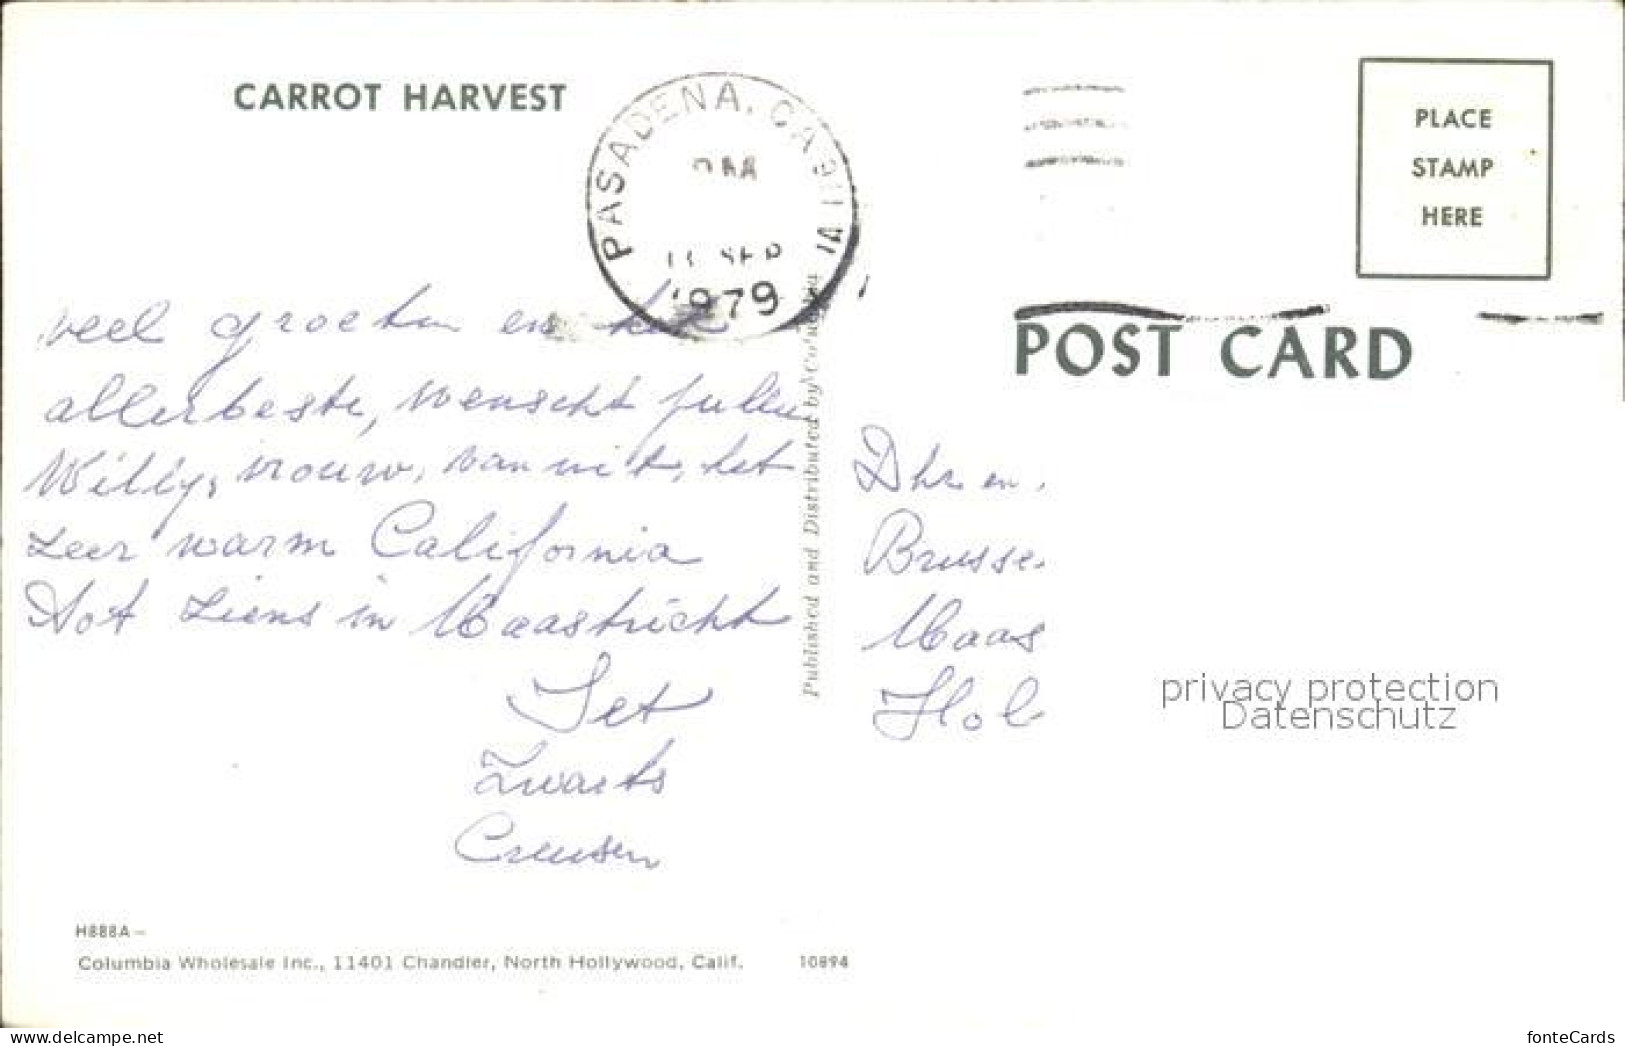 CARROT HARVEST
PASADENA, CA
PM
11 SEP
1979
PLACE
STAMP
HERE
POST CARD
veel groeten en het
allerbeste, wenscht jullie
Willy, vrouw, van uit, het
zeer warm California
Tot ziens in Maastricht
Jet
Zwarts
Creusen
Published and Distributed by Columbia
Dhr en
Brusse
Maas
Hol
privacy protection
Datenschutz
H888A-
Columbia Wholesale Inc., 11401 Chandler, North Hollywood, Calif. 10894
www.delcampe.net
fonteCards